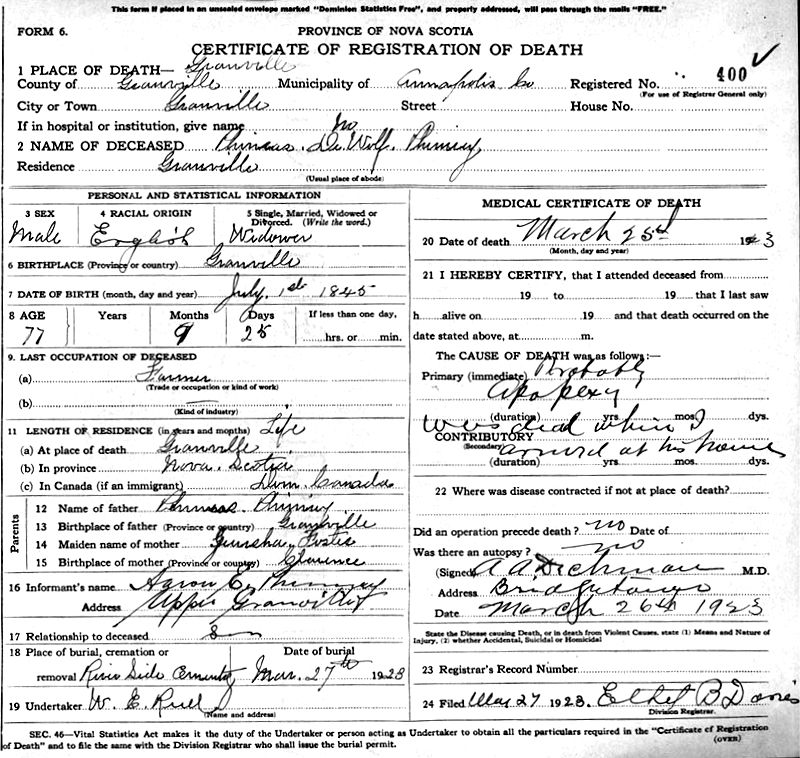 This form if placed in an unsealed envelope marked "Dominion Statistics Free", and properly addressed, will pass through the mails "FREE."
FORM 6.
PROVINCE OF NOVA SCOTIA
CERTIFICATE OF REGISTRATION OF DEATH
1 PLACE OF DEATH— Granville
County of Granville Municipality of Annapolis Co Registered No. 400
(For use of Registrar General only)
City or Town Granville Street House No.
If in hospital or institution, give name No
2 NAME OF DECEASED Phineas De Wolf Phinney
Residence Granville
(Usual place of abode)
PERSONAL AND STATISTICAL INFORMATION
3 SEX 4 RACIAL ORIGIN 5 Single, Married, Widowed or Divorced. (Write the word.)
Male English Widower
6 BIRTHPLACE (Province or country) Granville
7 DATE OF BIRTH (month, day and year) July 1st 1845
8 AGE Years Months Days If less than one day,
77 9 25 hrs. or min.
9. LAST OCCUPATION OF DECEASED
(a) Farmer
(Trade or occupation or kind of work)
(b)
(Kind of industry)
11 LENGTH OF RESIDENCE (in years and months) Life
(a) At place of death Granville
(b) In province Nova Scotia
(c) In Canada (if an immigrant) Dom. Canada
Parents
12 Name of father Phineas Phinney
13 Birthplace of father (Province or country) Granville
14 Maiden name of mother Foster
15 Birthplace of mother (Province or country) Clarence
16 Informant's name Aaron E. Phinney
Address Upper Granville
17 Relationship to deceased Son
18 Place of burial, cremation or removal Date of burial
River Side Cemetery Mar. 27th 1923
19 Undertaker W. E.
(Name and address)
MEDICAL CERTIFICATE OF DEATH
20 Date of death March 25d 1923
(Month, day and year)
21 I HEREBY CERTIFY, that I attended deceased from
19 to 19 that I last saw
h alive on 19 and that death occurred on the
date stated above, at m.
The CAUSE OF DEATH was as follows:—
Primary (immediate) Probably
Apoplexy
(duration) yrs. mos. dys.
Was dead when I
CONTRIBUTORY
(Secondary) arrived at his home
(duration) yrs. mos. dys.
22 Where was disease contracted if not at place of death?
Did an operation precede death? no Date of
Was there an autopsy? no
(Signed) A A Dechman M.D.
Address Bridgetown
Date March 26th 1923
State the Disease causing Death, or in death from Violent Causes, state (1) Means and Nature of
Injury, (2) whether Accidental, Suicidal or Homicidal
23 Registrar's Record Number
24 Filed Mar 27 1923. B Davis
Division Registrar.
SEC. 46—Vital Statistics Act makes it the duty of the Undertaker or person acting as Undertaker to obtain all the particulars required in the "Certificate of Registration
of Death" and to file the same with the Division Registrar who shall issue the burial permit. (OVER)